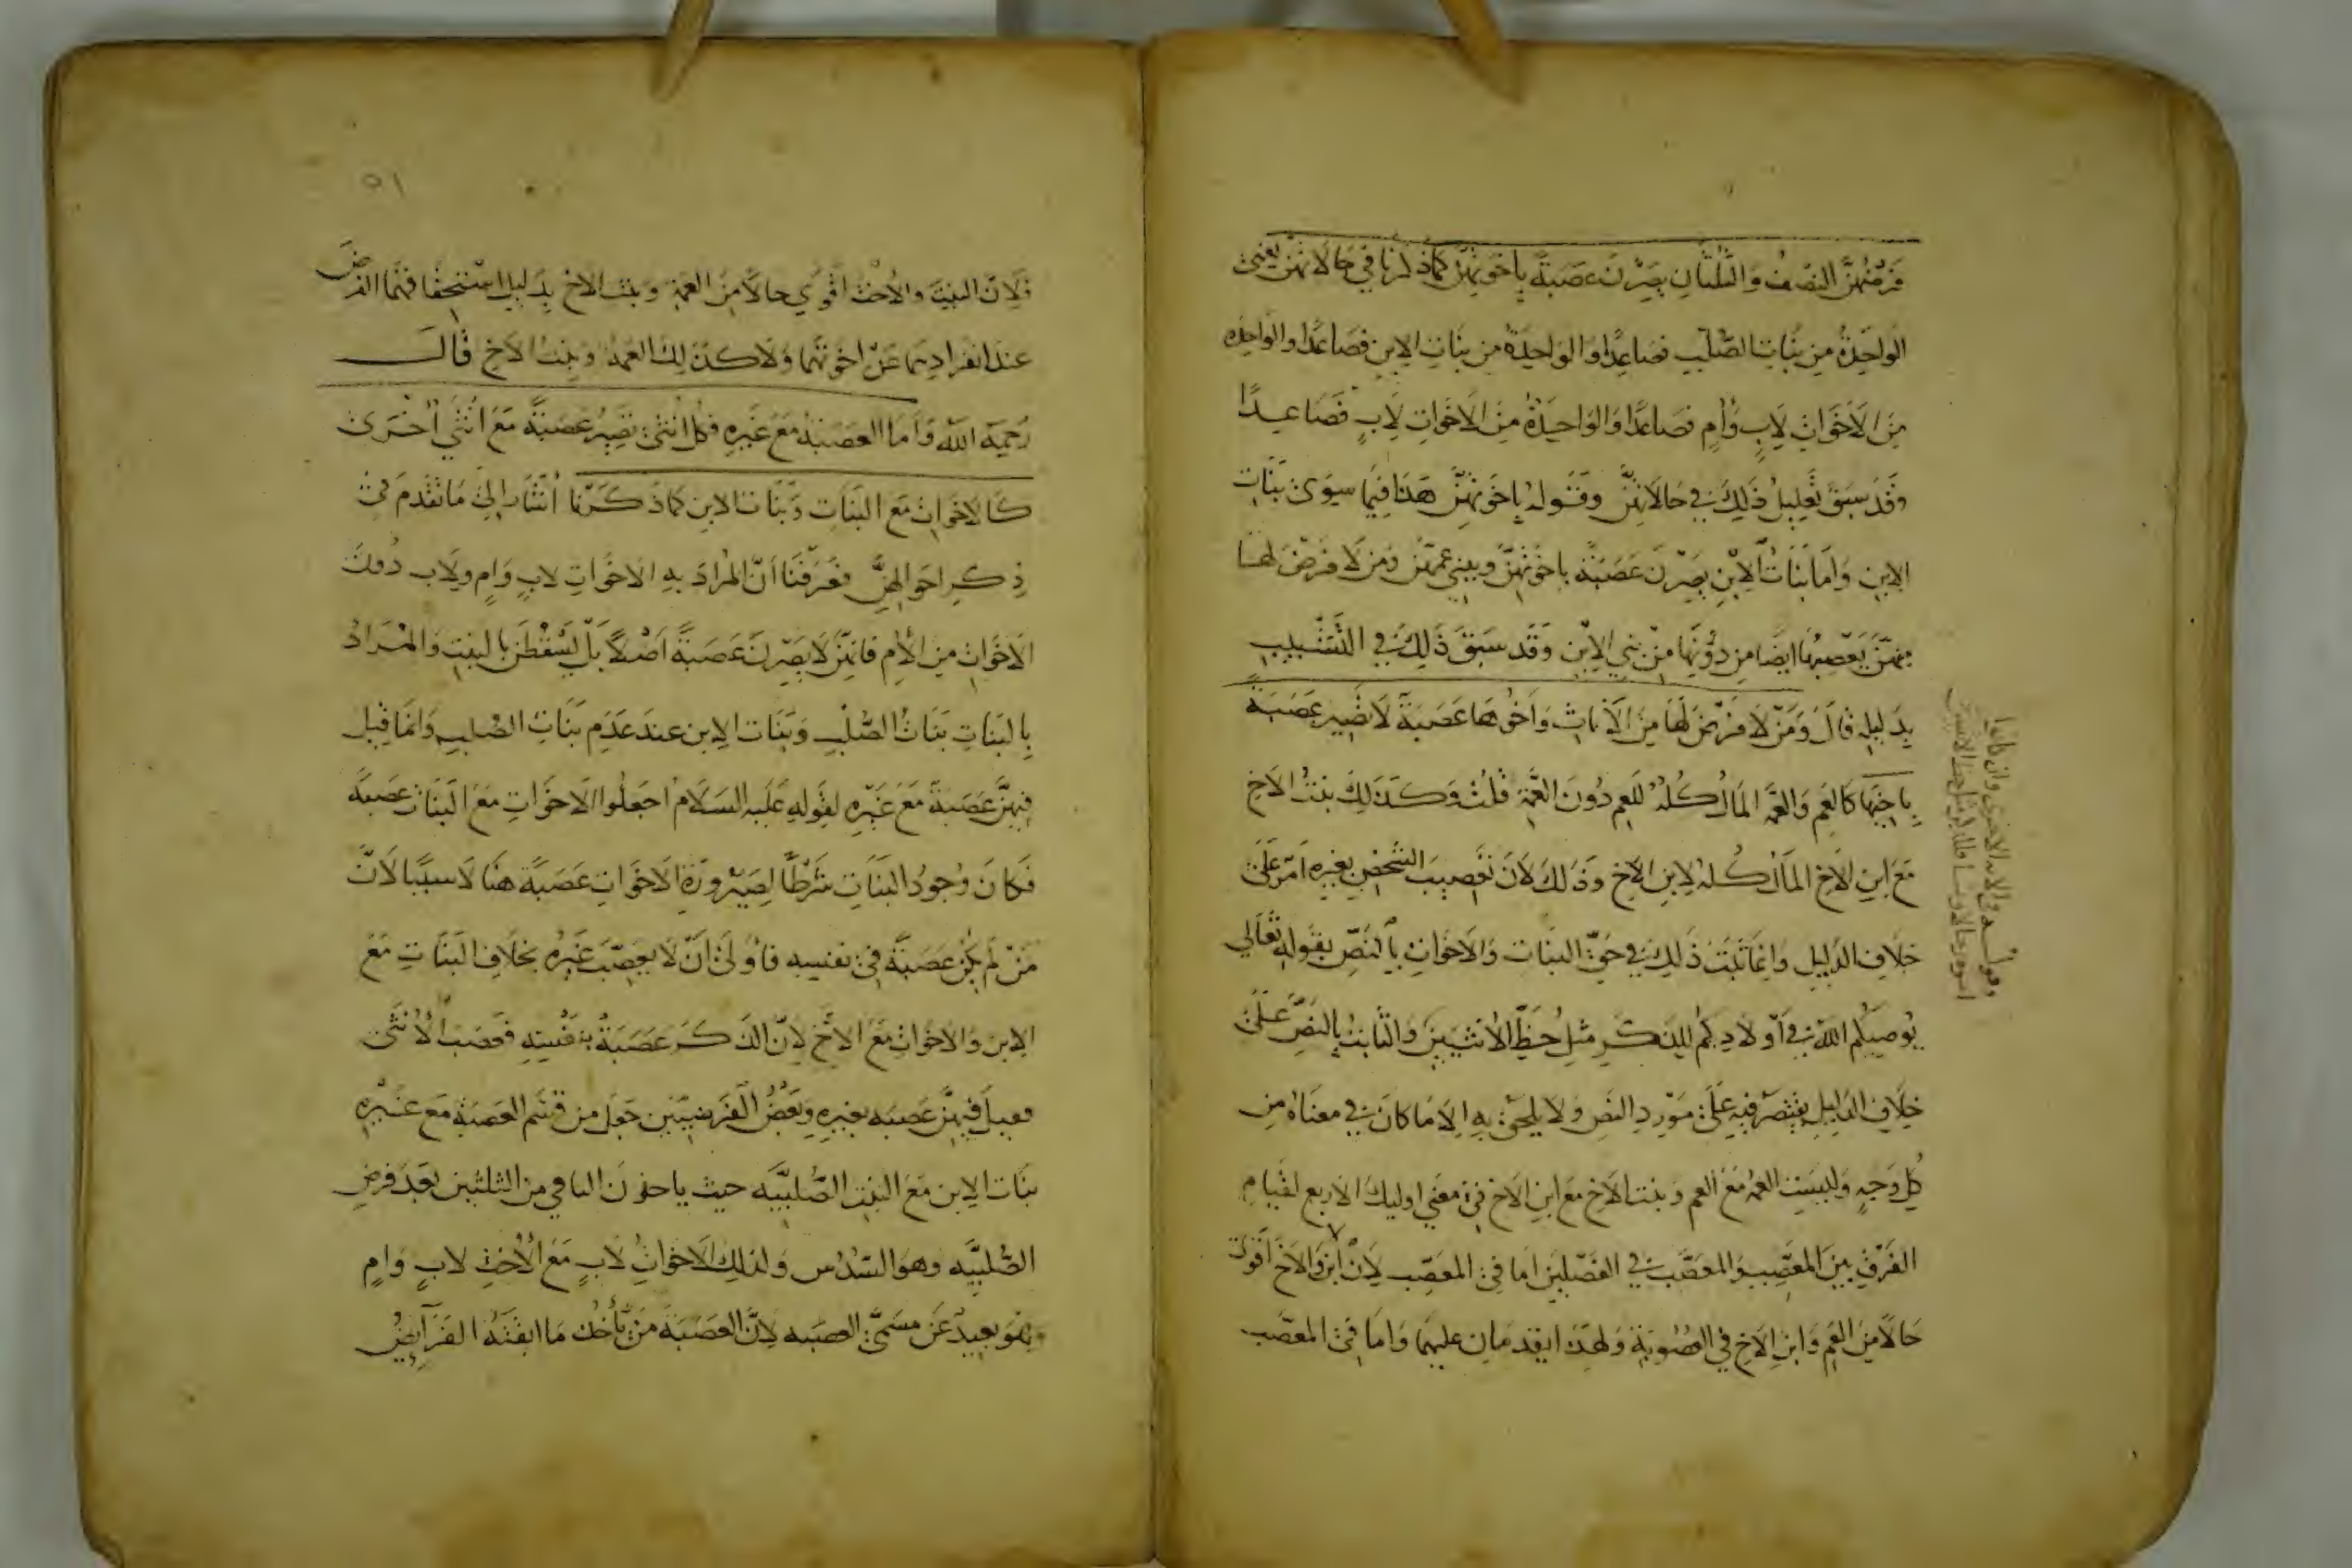 فرضهن النصف والثلثان يصرن عصبة باخوتهن كما ذكرنا في حالاتهن يعني
الواحدة من بنات الصلب فصاعدا والواحدة من بنات الابن فصاعدا والواحدة
من الاخوات لاب وام فصاعدا والواحدة من الاخوات لاب فصاعدا
وقد سبق تعليل ذلك في حالاتهن وقوله باخوتهن هذا فيما سوى بنات
الابن واما بنات الابن يصرن عصبة باخوتهن وببني عمهن ومن لا فرض لها
منهن يعصبها ايضا من دونها من بني الابن وقد سبق ذلك في التشبيب
بدليله قال ومن لا فرض لها من الاناث واخوها عصبة لا تصير عصبة
باخيها كالعم والعمة المال كله للعم دون العمة قلت وكذلك بنت الاخ
مع ابن الاخ المال كله لابن الاخ وذلك لان تعصيب الشخص بغيره امر على
خلاف الدليل وانما ثبت ذلك في حق البنات والاخوات بالنص بقوله تعالى
يوصيكم الله في اولادكم للذكر مثل حظ الانثيين والثابت بالنص على
خلاف الدليل يقتصر فيه على مورد النص ولا يلحق به الا ما كان في معناه من
كل وجه وليست العمة مع العم وبنت الاخ مع ابن الاخ في معنى اوليك الاربع لقيام
الفرق بين المعصب والمعصب في الفصلين اما في المعصب لان ابن والاخ اقوى
حالا من العم وابن الاخ في العصوبة ولهذا يقدمان عليهما واما في المعصب
وقوله في الاية الاخرى وان كانوا
اخوة رجالا ونسا فللذكر مثل حظ الانثيين
٥١
فلان البنت والاخت اقوى حالا من العمة وبنت الاخ بدليل استحقاقهما الفرض
عند انفرادهما عن اخوتهما ولا كذلك العمة وبنت الاخ قال
رحمه الله واما العصبة مع غيره فكل انثى تصير عصبة مع انثى اخرى
كالاخوات مع البنات وبنات الابن كما ذكرنا اشار الى ما تقدم في
ذكر احوالهن فعرفنا ان المراد به الاخوات لاب وام ولاب دون
الاخوات من الام فانهن لا يصرن عصبة اصلا بل يسقطن بالبنت والمراد
بالبنات بنات الصلب وبنات الابن عند عدم بنات الصلب وانما قيل
فيهن عصبة مع غيره لقوله عليه السلام اجعلوا الاخوات مع البنات عصبة
فكان وجود البنات شرطا لصيرورة الاخوات عصبة هنا لا سببا لان
من لم يكن عصبة في نفسه فاولى ان لا يعصب غيره بخلاف البنات مع
الابن والاخوات مع الاخ لان الذكر عصبة بنفسه فعصب الانثى
فقيل فيهن عصبه بغيره وبعض الفرضيين جعل من قسم العصبة مع غيره
بنات الابن مع البنت الصلبيه حيث ياخذن الباقي من الثلثين بعد فرض
الصلبيه وهو السدس ولذلك الاخوات لاب مع الاخت لاب وام
وهو بعيد عن مسمى العصبه لان العصبة من ياخذ ما ابقته الفرايض